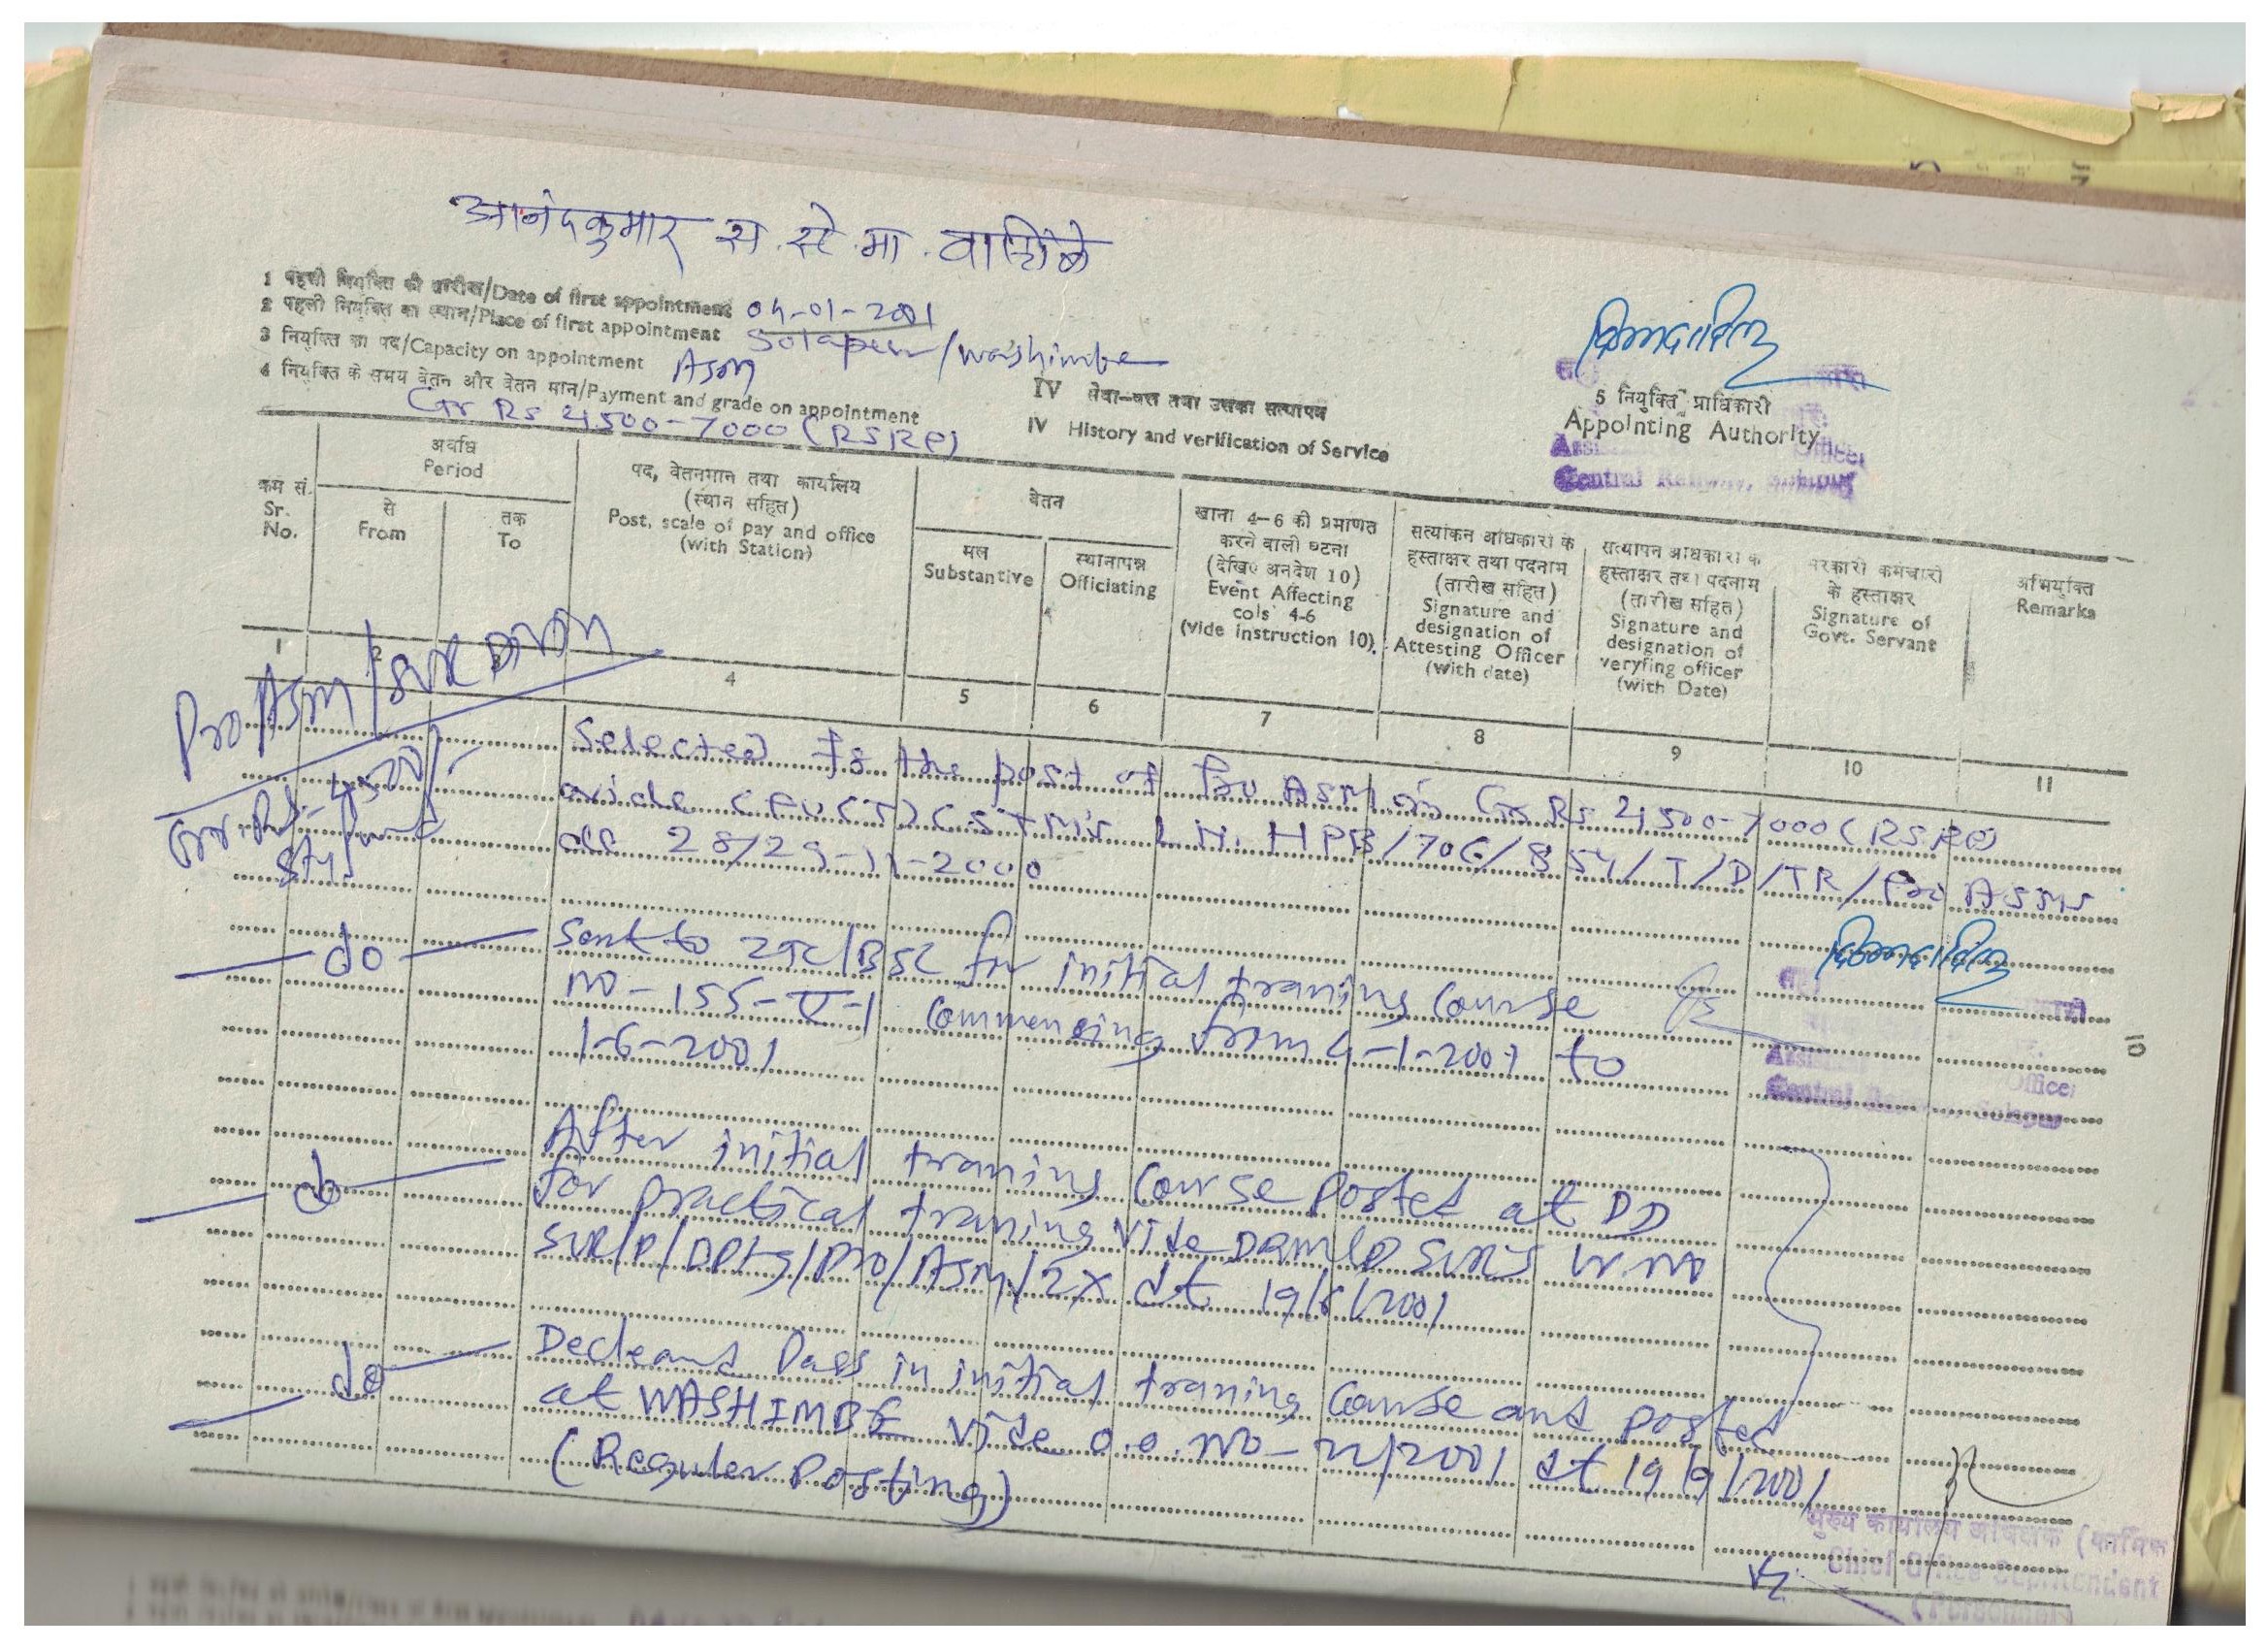 आनंदकुमार स. स्टे. मा. वाशिंबे
1 पहली नियुक्ति की तारीख/Date of first appointment 04-01-2001
2 पहली नियुक्ति का स्थान/Place of first appointment Solapur/Washimbe
3 नियुक्ति का पद/Capacity on appointment ASM
4 नियुक्ति के समय वेतन और वेतन मान/Payment and grade on appointment
Gr Rs 4500-7000 (RSRP)
IV सेवा-वृत्त तथा उसका सत्यापन
IV History and verification of Service
5 नियुक्ति प्राधिकारी
Appointing Authority
Central Railway, Solapur
क्रम सं.
Sr.
No.
अवधि
Period
से
From
तक
To
पद, वेतनमान तथा कार्यालय
(स्थान सहित)
Post, scale of pay and office
(with Station)
वेतन
मूल
Substantive
स्थानापन्न
Officiating
खाना 4-6 की प्रमाणत
करने वाली घटना
(देखिए अनदेश 10)
Event Affecting
cols 4-6
(vide instruction 10).
सत्यांकन अधिकारी के
हस्ताक्षर तथा पदनाम
(तारीख सहित)
Signature and
designation of
Attesting Officer
(with date)
सत्यापन अधिकारी के
हस्ताक्षर तथा पदनाम
(तारीख सहित)
Signature and
designation of
veryfing officer
(with Date)
सरकारी कर्मचारी
के हस्ताक्षर
Signature of
Govt. Servant
अभियुक्ति
Remarks
1 2 3 4 5 6 7 8 9 10 11
Pro ASM/SUR Divn
Gr. Rs. 4500/-
Selected for the post of Pro ASM in Gr Rs 4500-7000 (RSRP)
vide CPO(T)CSTM's L.N. HPB/706/854/T/D/TR/Pro ASMs
dt 28/29-11-2000
— do — Sent to ZTC/BSL for initial traning Course
no - 155-V-1 Commencing from 4-1-2001 to
1-6-2001
Central Solapur
Officer
10
— do — After initial traning Course Posted at DD
for practical traning vide DRM(P) SUR's W. no
SUR/P/OPtg/Pro/ASM/2X dt 19/6/2001
— do — Decleared Pass in initial traning Course and posted
at WASHIMBE vide o.o. no - 22/2001 dt 19/9/2001
(Reguler Posting)
मुख्य कार्यालय अधिक्षक (कार्मिक
Chief Office Suprintendent
(Personnel)